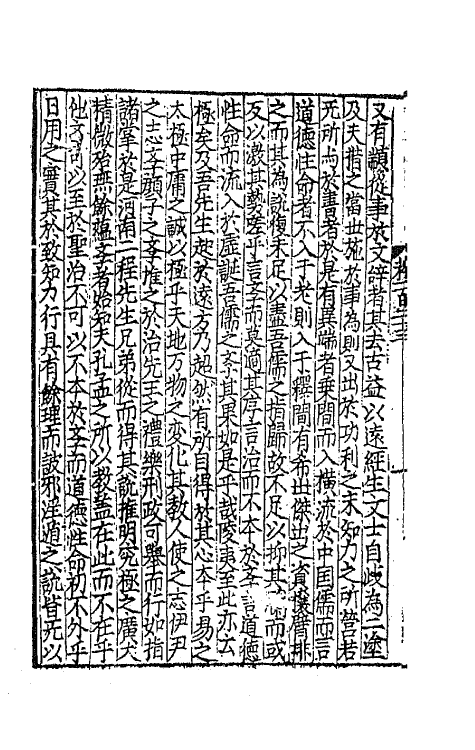 又有顓從事於文辭者其去古益以遠經生文士自歧為二塗
及夫措之當世施於事為則又出於功利之末知力之所營若
无所与於書者於是有異端者乗間而入横流於中国儒而言
道德性命者不入于老則入于釋間有希世傑出之資攘臂排
之而其為說復未足以盡吾儒之指歸故不足以抑其瀾而或
反以激其勢嗟乎言学而莫適其序言治而不本於学言道德
性命而流入於虛誕吾儒之学其果如是乎哉陵夷至此亦云
極矣及吾先生起於遠方乃超然有所自得於其心本乎易之
太極中庸之誠以極乎天地万物之変化其教人使之志伊尹
之志学顔子之学推之於治先王之禮樂刑政可舉而行如指
諸掌於是河南二程先生兄弟從而得其說推明究極之廣大
精微殆無餘蘊学者始知夫孔孟之所以教盖在此而不在乎
他学可以至於聖治不可以不本於学而道德性命初不外乎
日用之實其於致知力行具有餘理而詖邪淫遁之說皆无以